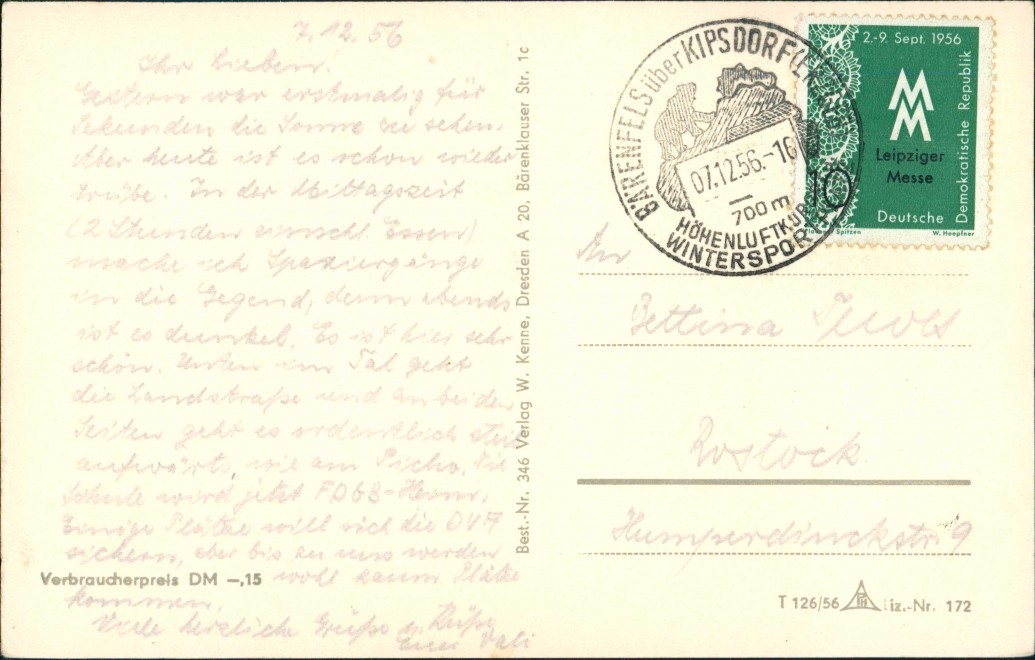 7.12.56
Ihr Lieben!
Gestern war erstmalig für
Sekunden die Sonne zu sehen.
Aber heute ist es schon wieder
trübe. In der Mittagszeit
(2 Stunden einschl. Essen)
mache ich Spaziergänge
in die Gegend, denn abends
ist es dunkel. Es ist hier sehr
schön. Unten im Tal geht
die Landstraße und an beiden
Seiten geht es ordentlich steil
aufwärts, wie am. Die
Schule wird jetzt FDGB-Heim.
Einige Plätze will sich die
sichern, aber bis zu uns werden
wohl kaum Plätze
kommen.
Viele herzliche Grüße u. Küße
Euer Vati
Verbraucherpreis DM –,15
Best.-Nr. 346 Verlag W. Kenne, Dresden A 20, Bärenklauser Str. 1c
BÄRENFELS über KIPSDORF
07.12.56.-16
700 m
HÖHENLUFTKUR
WINTERSPOR
2.-9. Sept. 1956
MM
Leipziger
Messe
10
Deutsche
Demokratische Republik
Plauener Spitzen
W. Hoepfner
An
Bettina
Rostock
Humperdinckstr. 9
T 126/56
Liz.-Nr. 172